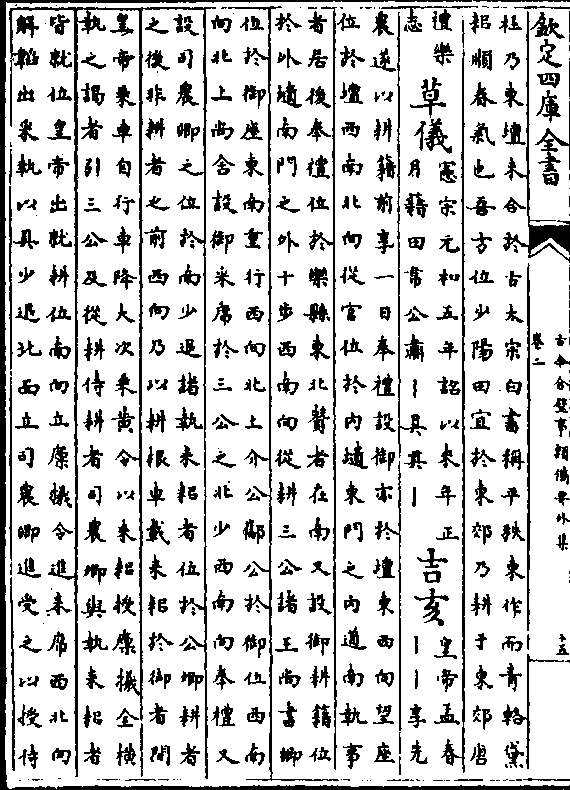 欽定四庫全書
古今合璧事類備要外集
卷二
十五
在乃東壇未合於古太宗曰書稱平秩東作而青輅黛
耜順春氣也吾方位少陽田宜於東郊乃耕于東郊唐
禮樂
志
草儀
憲宗元和五年詔以來年正
月籍田常公肅丨具其丨
吉亥
皇帝孟春
丨丨享先
農遂以耕籍前享一日奉禮設御亦於壇東西向望座
位於壇西南北向從官位於内壝東門之内道南執事
者居後奉禮位於樂縣東北贊者在南又設御耕籍位
於外壝南門之外十步西南向從耕三公諸王尚書卿
位於御座東南重行西向北上介公酅公於御位西南
向北上尚舍設御耒席於三公之北少西南向奉禮又
設司農卿之位於南少退諸執耒耜者位於公卿耕者
之後非耕者之前西向乃以耕根車載耒耜於御者間
皇帝乘車自行車降大次乘黃令以耒耜授廩犧令橫
執之謁者引三公及從耕侍耕者司農卿與執耒耜者
皆就位皇帝出就耕位南向立廩犧令進耒席西北向
解韜出耒執以具少退北面立司農卿進受之以授侍